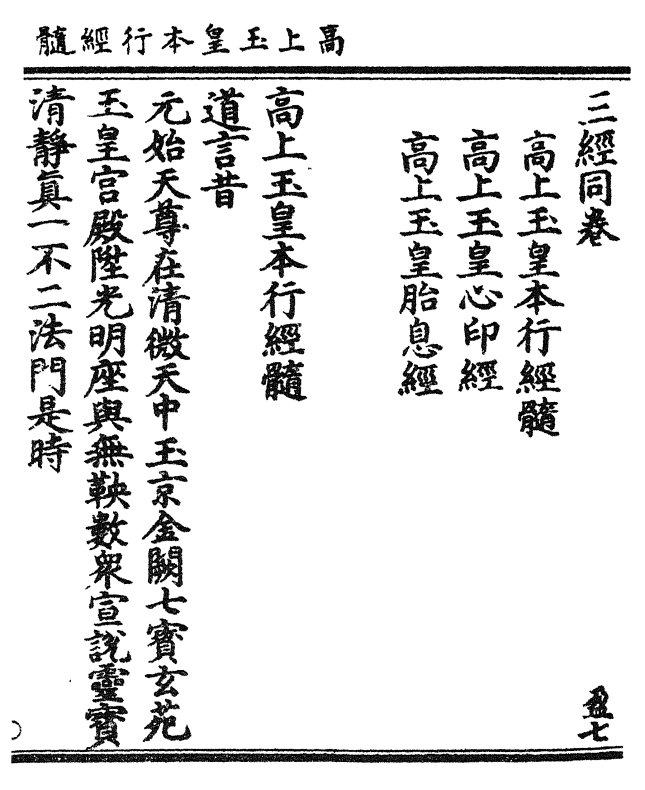 高上玉皇本行經髓
三經同卷
盈七
高上玉皇本行經髓
高上玉皇心印經
高上玉皇胎息經
高上玉皇本行經髓
道言昔
元始天尊在清微天中玉京金闕七寶玄苑
玉皇宮殿陞光明座與無鞅數衆宣說靈寶
清靜真一不二法門是時